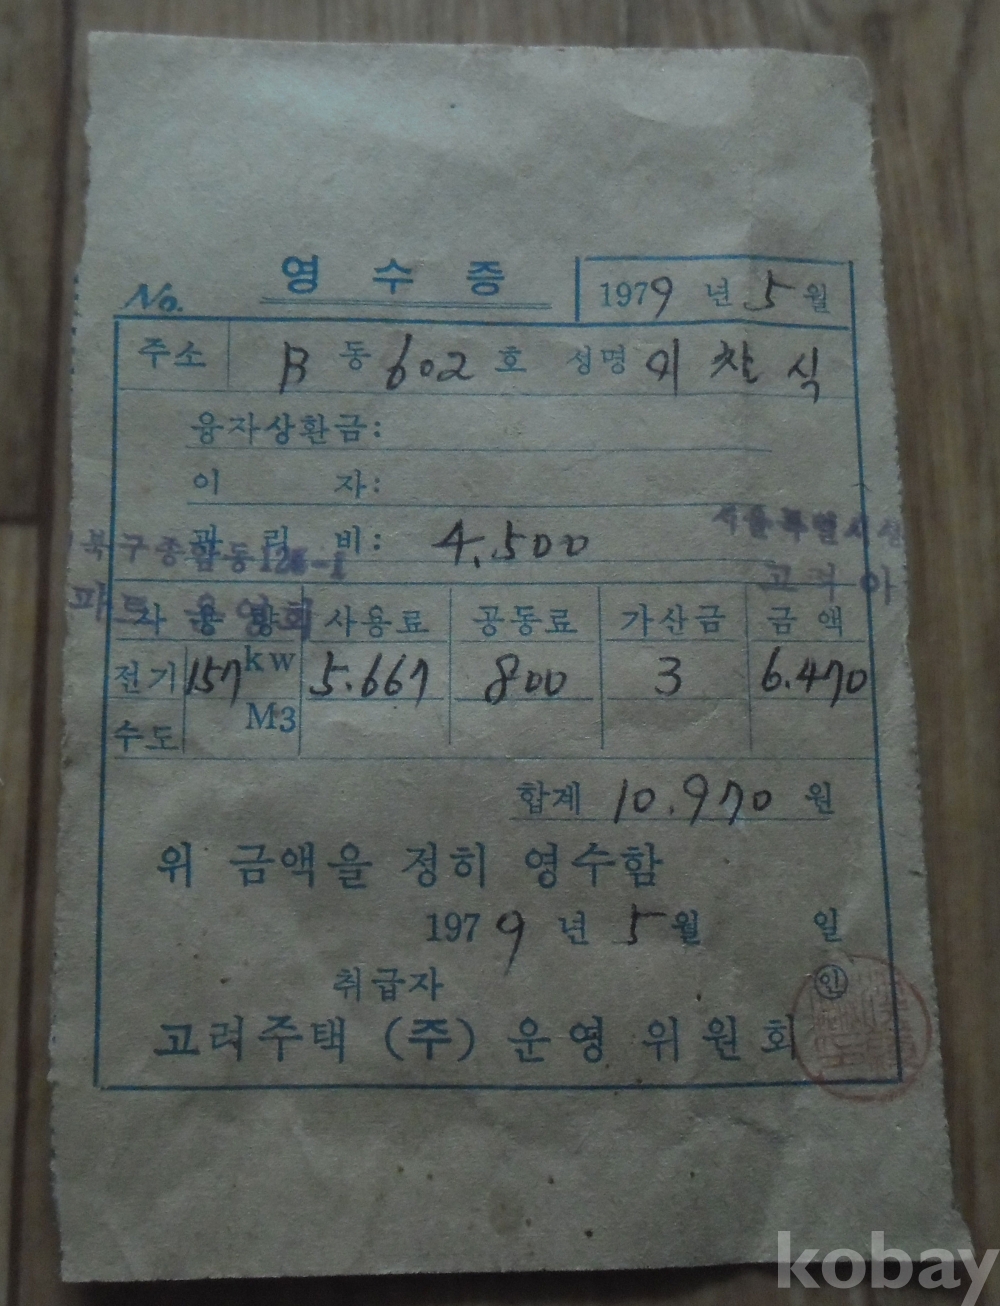 No. 영수증 1979년 5월
주소 B동 602호 성명 이찬식
융자상환금:
이 자:
관리비: 4.500
북구종암동126-1
사용량 사용료 공동료 가산금 금액
전기 157 kw 5.667 800 3 6.470
수도 M3
합계 10.970 원
위 금액을 정히 영수함
1979년 5월 일
취급자 인
고려주택 (주) 운영위원회
kobay